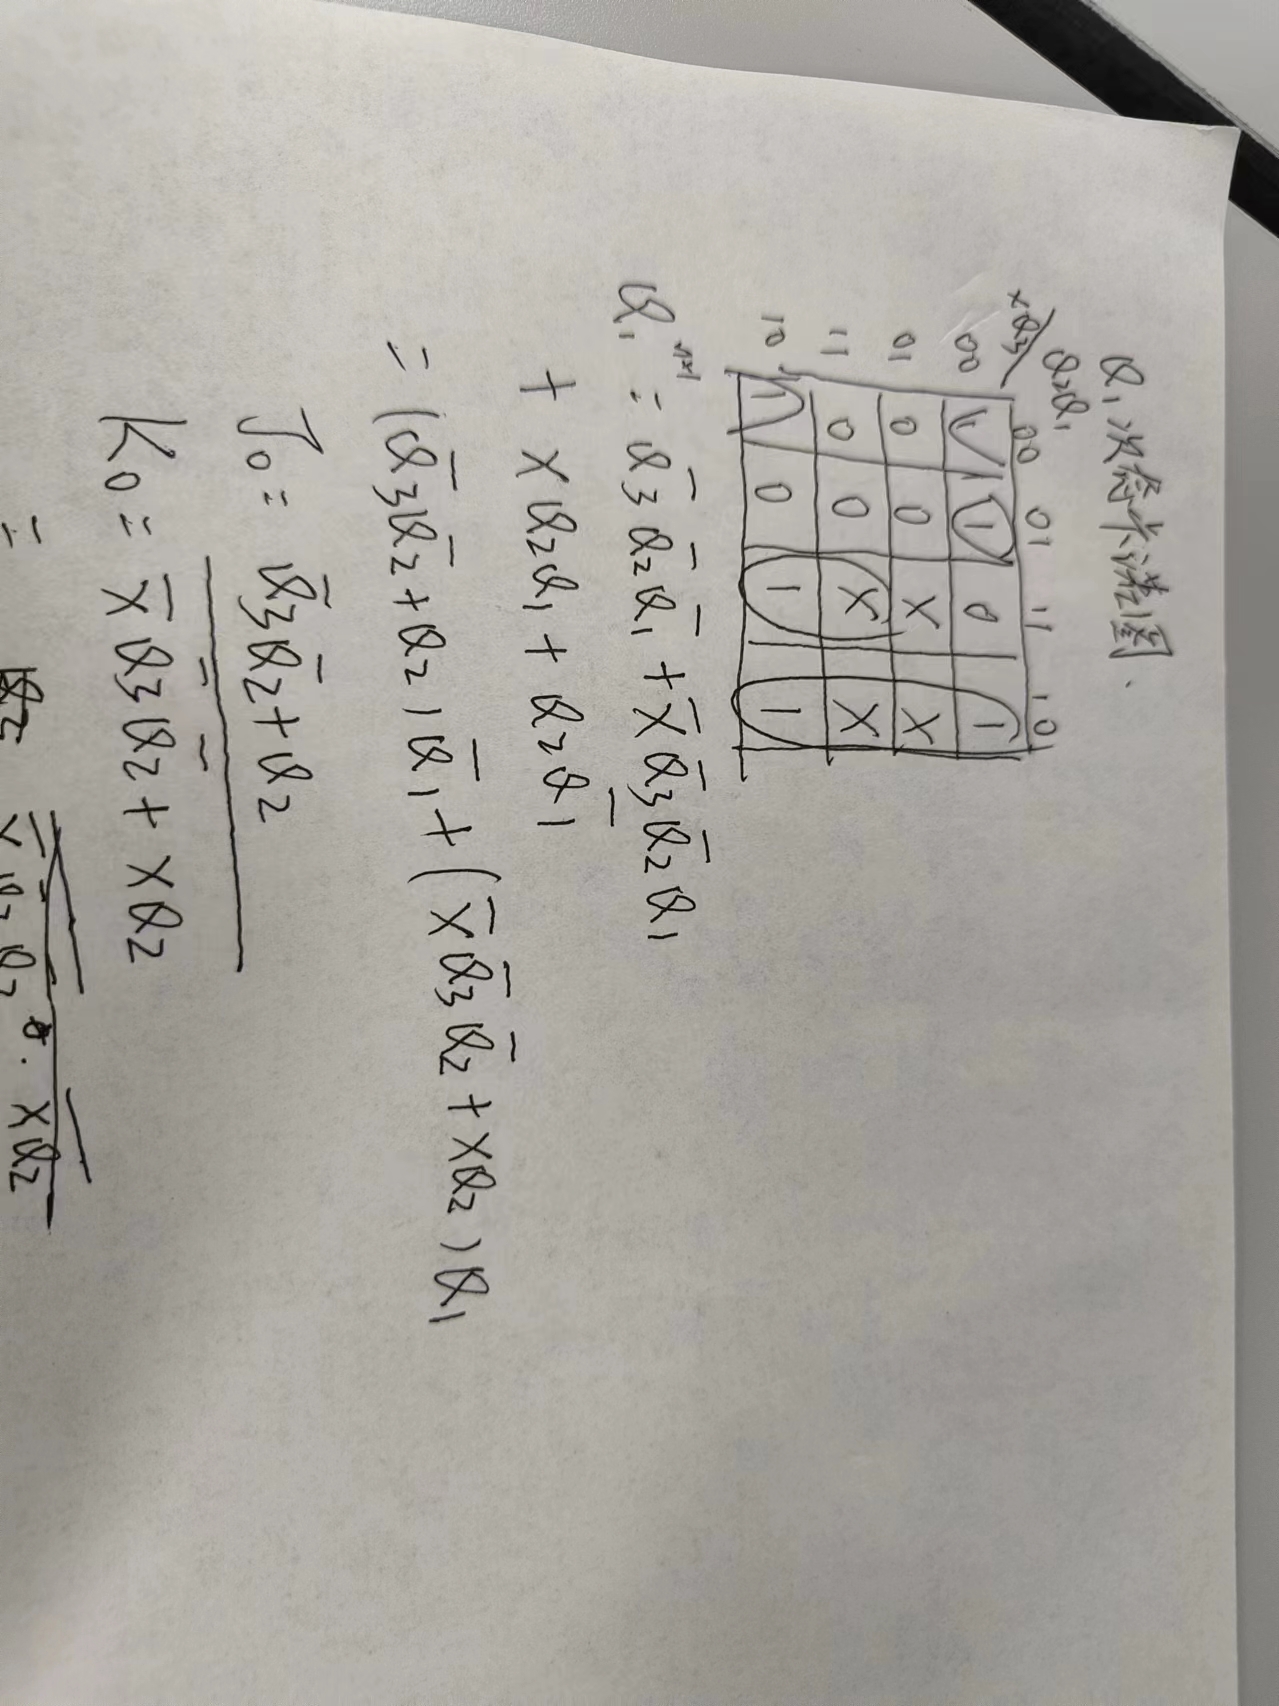 Q₁次态卡诺图.
Q₂Q₁
XQ₃ 00 01 11 10
00 1 1 0 1
01 0 0 X X
11 0 0 X X
10 1 0 1 1
Q₁ⁿ⁺¹ = Q̄₃Q̄₂Q̄₁ + X̄Q̄₃Q̄₂Q₁
+ XQ₂Q₁ + Q₂Q̄₁
= (Q̄₃Q̄₂+Q₂)Q̄₁+(X̄Q̄₃Q̄₂+XQ₂)Q₁
J₀ = Q̄₃Q̄₂+Q₂
K₀ = X̄Q̄₃Q̄₂+XQ₂
=